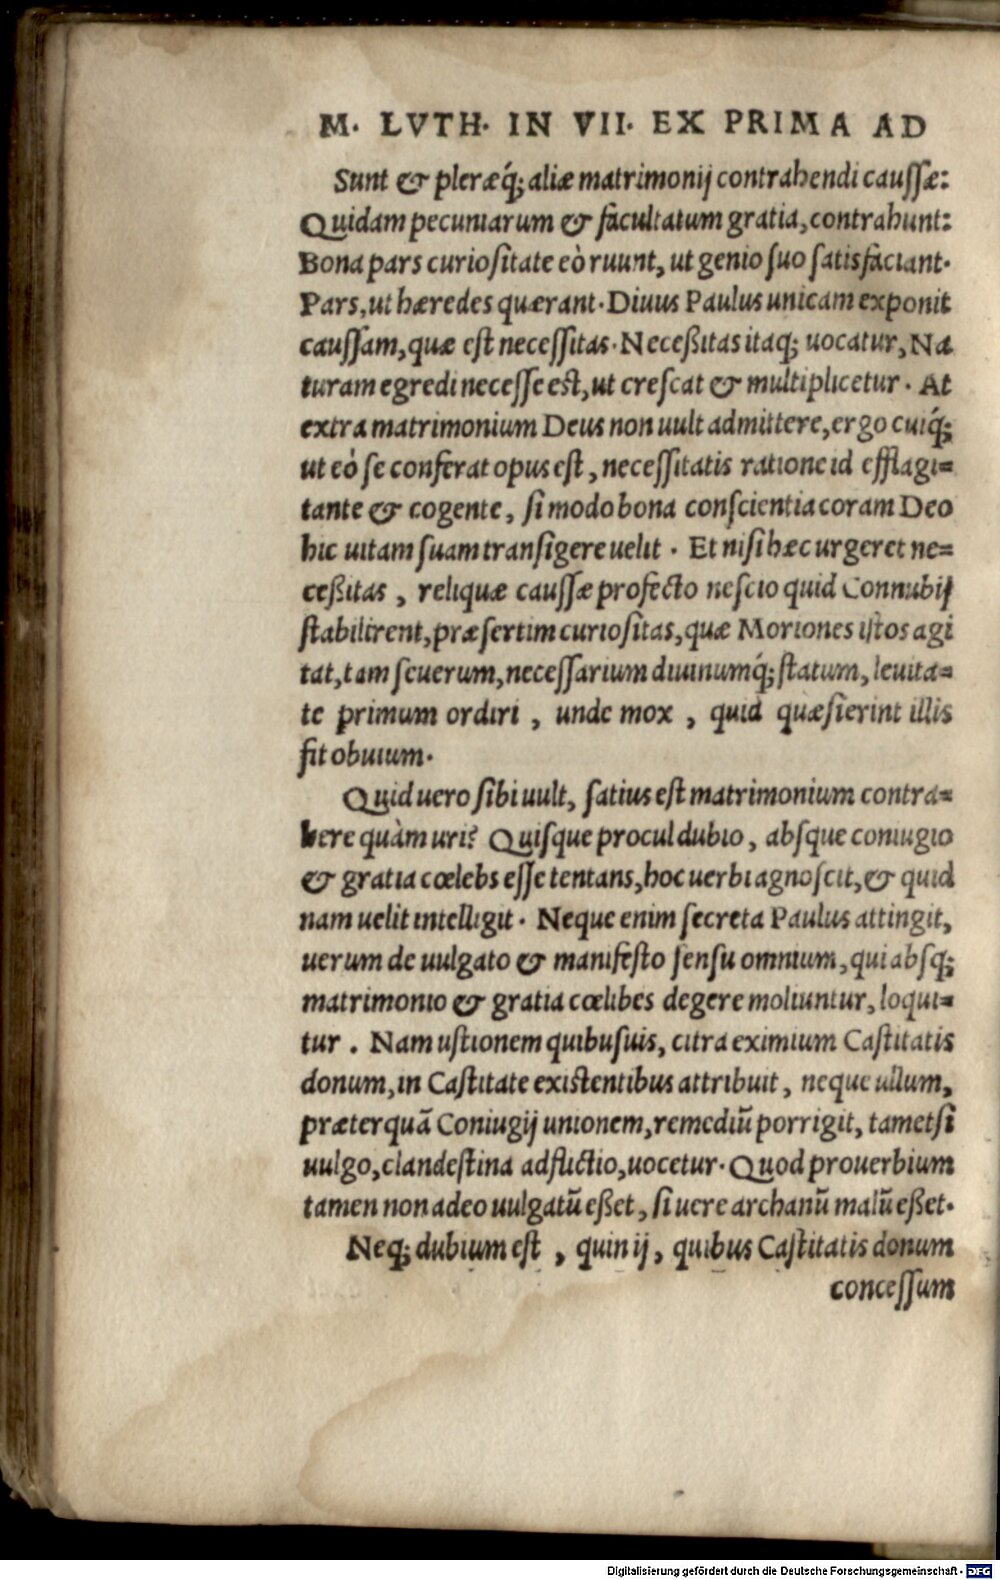 M. LVTH. IN VII. EX PRIMA AD
Sunt & pleræq́; aliæ matrimonij contrahendi caussæ:
Quidam pecuniarum & facultatum gratia, contrahunt:
Bona pars curiositate eò ruunt, ut genio suo satisfaciant.
Pars, ut hæredes quærant. Diuus Paulus unicam exponit
caussam, quæ est necessitas. Neceßitas itaq; uocatur, Na
turam egredi necesse est, ut crescat & multiplicetur. At
extra matrimonium Deus non uult admittere, ergo cuiq́;
ut eò se conferat opus est, necessitatis ratione id efflagi=
tante & cogente, si modo bona conscientia coram Deo
hic uitam suam transigere uelit. Et nisi hæc urgeret ne=
ceßitas, reliquæ caussæ profecto nescio quid Connubij
stabilirent, præsertim curiositas, quæ Moriones istos agi
tat, tam seuerum, necessarium diuinumq́; statum, leuita=
te primum ordiri, unde mox, quid quæsierint illis
fit obuium.
Quid uero sibi uult, satius est matrimonium contra=
here quàm uri? Quisque procul dubio, absque coniugio
& gratia cœlebs esse tentans, hoc uerbi agnoscit, & quid
nam uelit intelligit. Neque enim secreta Paulus attingit,
uerum de uulgato & manifesto sensu omnium, qui absq;
matrimonio & gratia cœlibes degere moliuntur, loqui=
tur. Nam ustionem quibusuis, citra eximium Castitatis
donum, in Castitate existentibus attribuit, neque ullum,
præterquā Coniugij unionem, remediū porrigit, tametsi
uulgo, clandestina adflictio, uocetur. Quod prouerbium
tamen non adeo uulgatū eßet, si uere archanū malū eßet.
Neq; dubium est, quin ij, quibus Castitatis donum
concessum
Digitalisierung gefördert durch die Deutsche Forschungsgemeinschaft - DFG